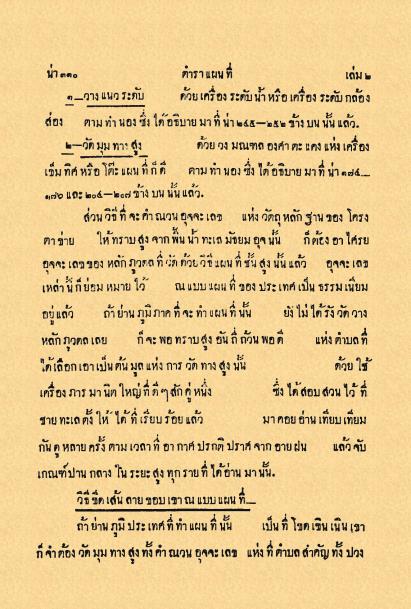 น่า ๓๑๐ ตำรา แผน ที่ เล่ม ๒
๑—วาง แนว ระดับ ด้วย เครื่อง ระดับ น้ำ หรือ เครื่อง ระดับ กล้อง
ส่อง ตาม ทำ นอง ซึ่ง ได้ อธิบาย มา ที่ น่า ๒๔๕—๒๕๒ ข้าง บน นั้น แล้ว.
๒—วัด มุม ทาง สูง ด้วย วง มณฑล องศา ตะ แคง แห่ง เครื่อง
เข็ม ทิศ หรือ โต๊ะ แผน ที่ ก็ ดี ตาม ทำ นอง ซึ่ง ได้ อธิบาย มา ที่ น่า ๑๗๔—
๑๗๖ และ ๒๐๔—๒๐๗ ข้าง บน นั้น แล้ว.
ส่วน วิธี ที่ จะ คำ ณวน อุจจะ เลข แห่ง วัตถุ หลัก ฐาน ของ โครง
ตา ข่าย ให้ ทราบ สูง จาก พื้น น้ำ ทะเล มัธยม อุจ นั้น ก็ ต้อง อา ไศรย
อุจจะ เลข ของ หลัก ภูวดล ที่ วัด ด้วย วิธี แผน ที่ ชั้น สูง นั้น แล้ว อุจจะ เลข
เหล่า นี้ ก็ ย่อม หมาย ไว้ ณ แบบ แผน ที่ ของ ประเทศ เป็น ธรรม เนียม
อยู่ แล้ว ถ้า ย่าน ภูมิ ภาค ที่ จะ ทำ แผน ที่ นั้น ยัง ไม่ ได้ รัง วัด วาง
หลัก ภูวดล เลย ก็ จะ พอ ทราบ สูง อัน ถี่ ถ้วน พอ ดี แห่ง ตำบล ที่
ได้ เลือก เอา เป็น ต้น มูล แห่ง การ วัด ทาง สูง นั้น ด้วย ใช้
เครื่อง ภาร มา นิต ใหญ่ ที่ ดี ๆ สัก คู่ หนึ่ง ซึ่ง ได้ สอบ สวน ไว้ ที่
ชาย ทะเล ตั้ง ให้ ได้ ที่ เรียบ ร้อย แล้ว มา คอย อ่าน เทียบ เทียม
กัน ดู หลาย ครั้ง ตาม เวลา ที่ อา กาศ ปรกติ ปราศ จาก อาย ฝน แล้ว จับ
เกณฑ์ ปาน กลาง ใน ระยะ สูง ทุก ราย ที่ ได้ อ่าน มา นั้น.
วิธี ขีด เส้น ลาย ขอบ เขา ณ แบบ แผน ที่—
ถ้า ย่าน ภูมิ ประ เทศ ที่ ทำ แผน ที่ นั้น เป็น ที่ โขด เขิน เนิน เขา
ก็ จำ ต้อง วัด มุม ทาง สูง ทั้ง คำ ณวน อุจจะ เลข แห่ง ที่ ตำบล สำคัญ ทั้ง ปวง